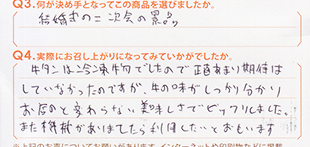 Q3.何が決め手となってこの商品を選びましたか。
結婚式の二次会の景品
Q4.実際にお召し上がりになってみていかがでしたか。
牛タンは冷凍牛肉でしたので正直あまり期待は
していなかったのですが、牛の味がしっかり分かり
お店のと変わらない美味しさでビックリしました。
また機械がありましたら利用したいとおもいます
※上記のお声についてお願いがあります。インターネットや印刷物などに掲載